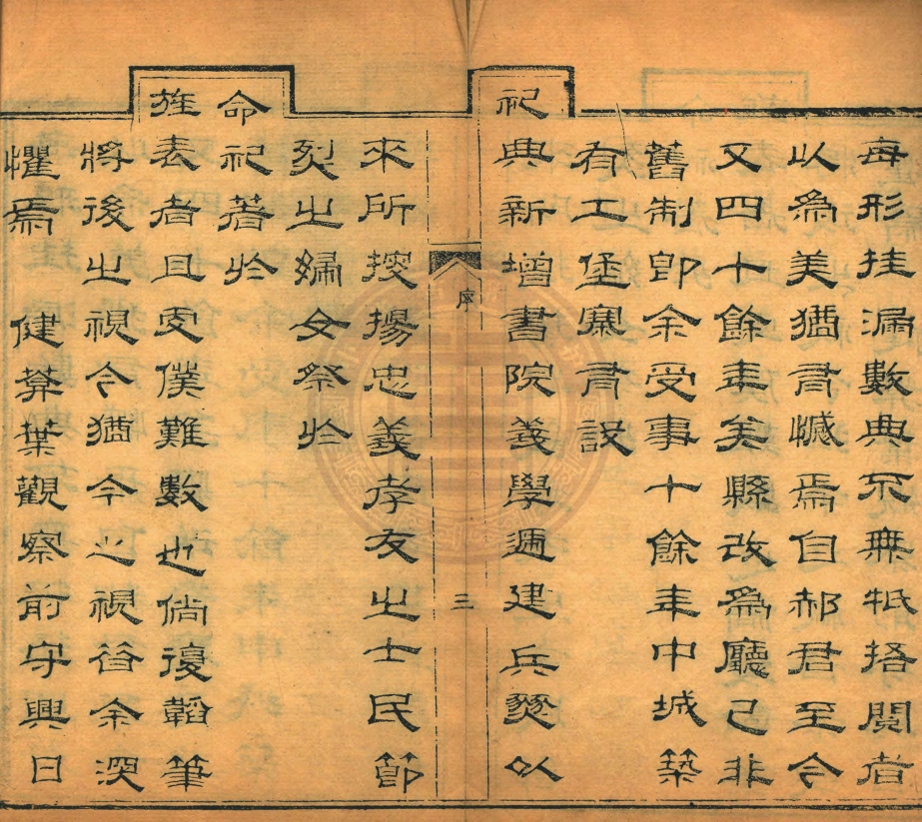 每形挂漏數典不無牴捂閱者
以爲美猶有憾焉自郝君至今
又四十餘年矣縣改爲廳已非
舊制卽余受事十餘年中城築
有工堡寨有說
祀典新增書院義學遞建兵燹以
序
三
來所
揚忠義孝友之士民節
烈之婦女祭於
命祀著於
旌表者且更僕難數也倘復韜筆
將後之視今猶今之視昔余深
懼焉 健葊葉觀察前守興日